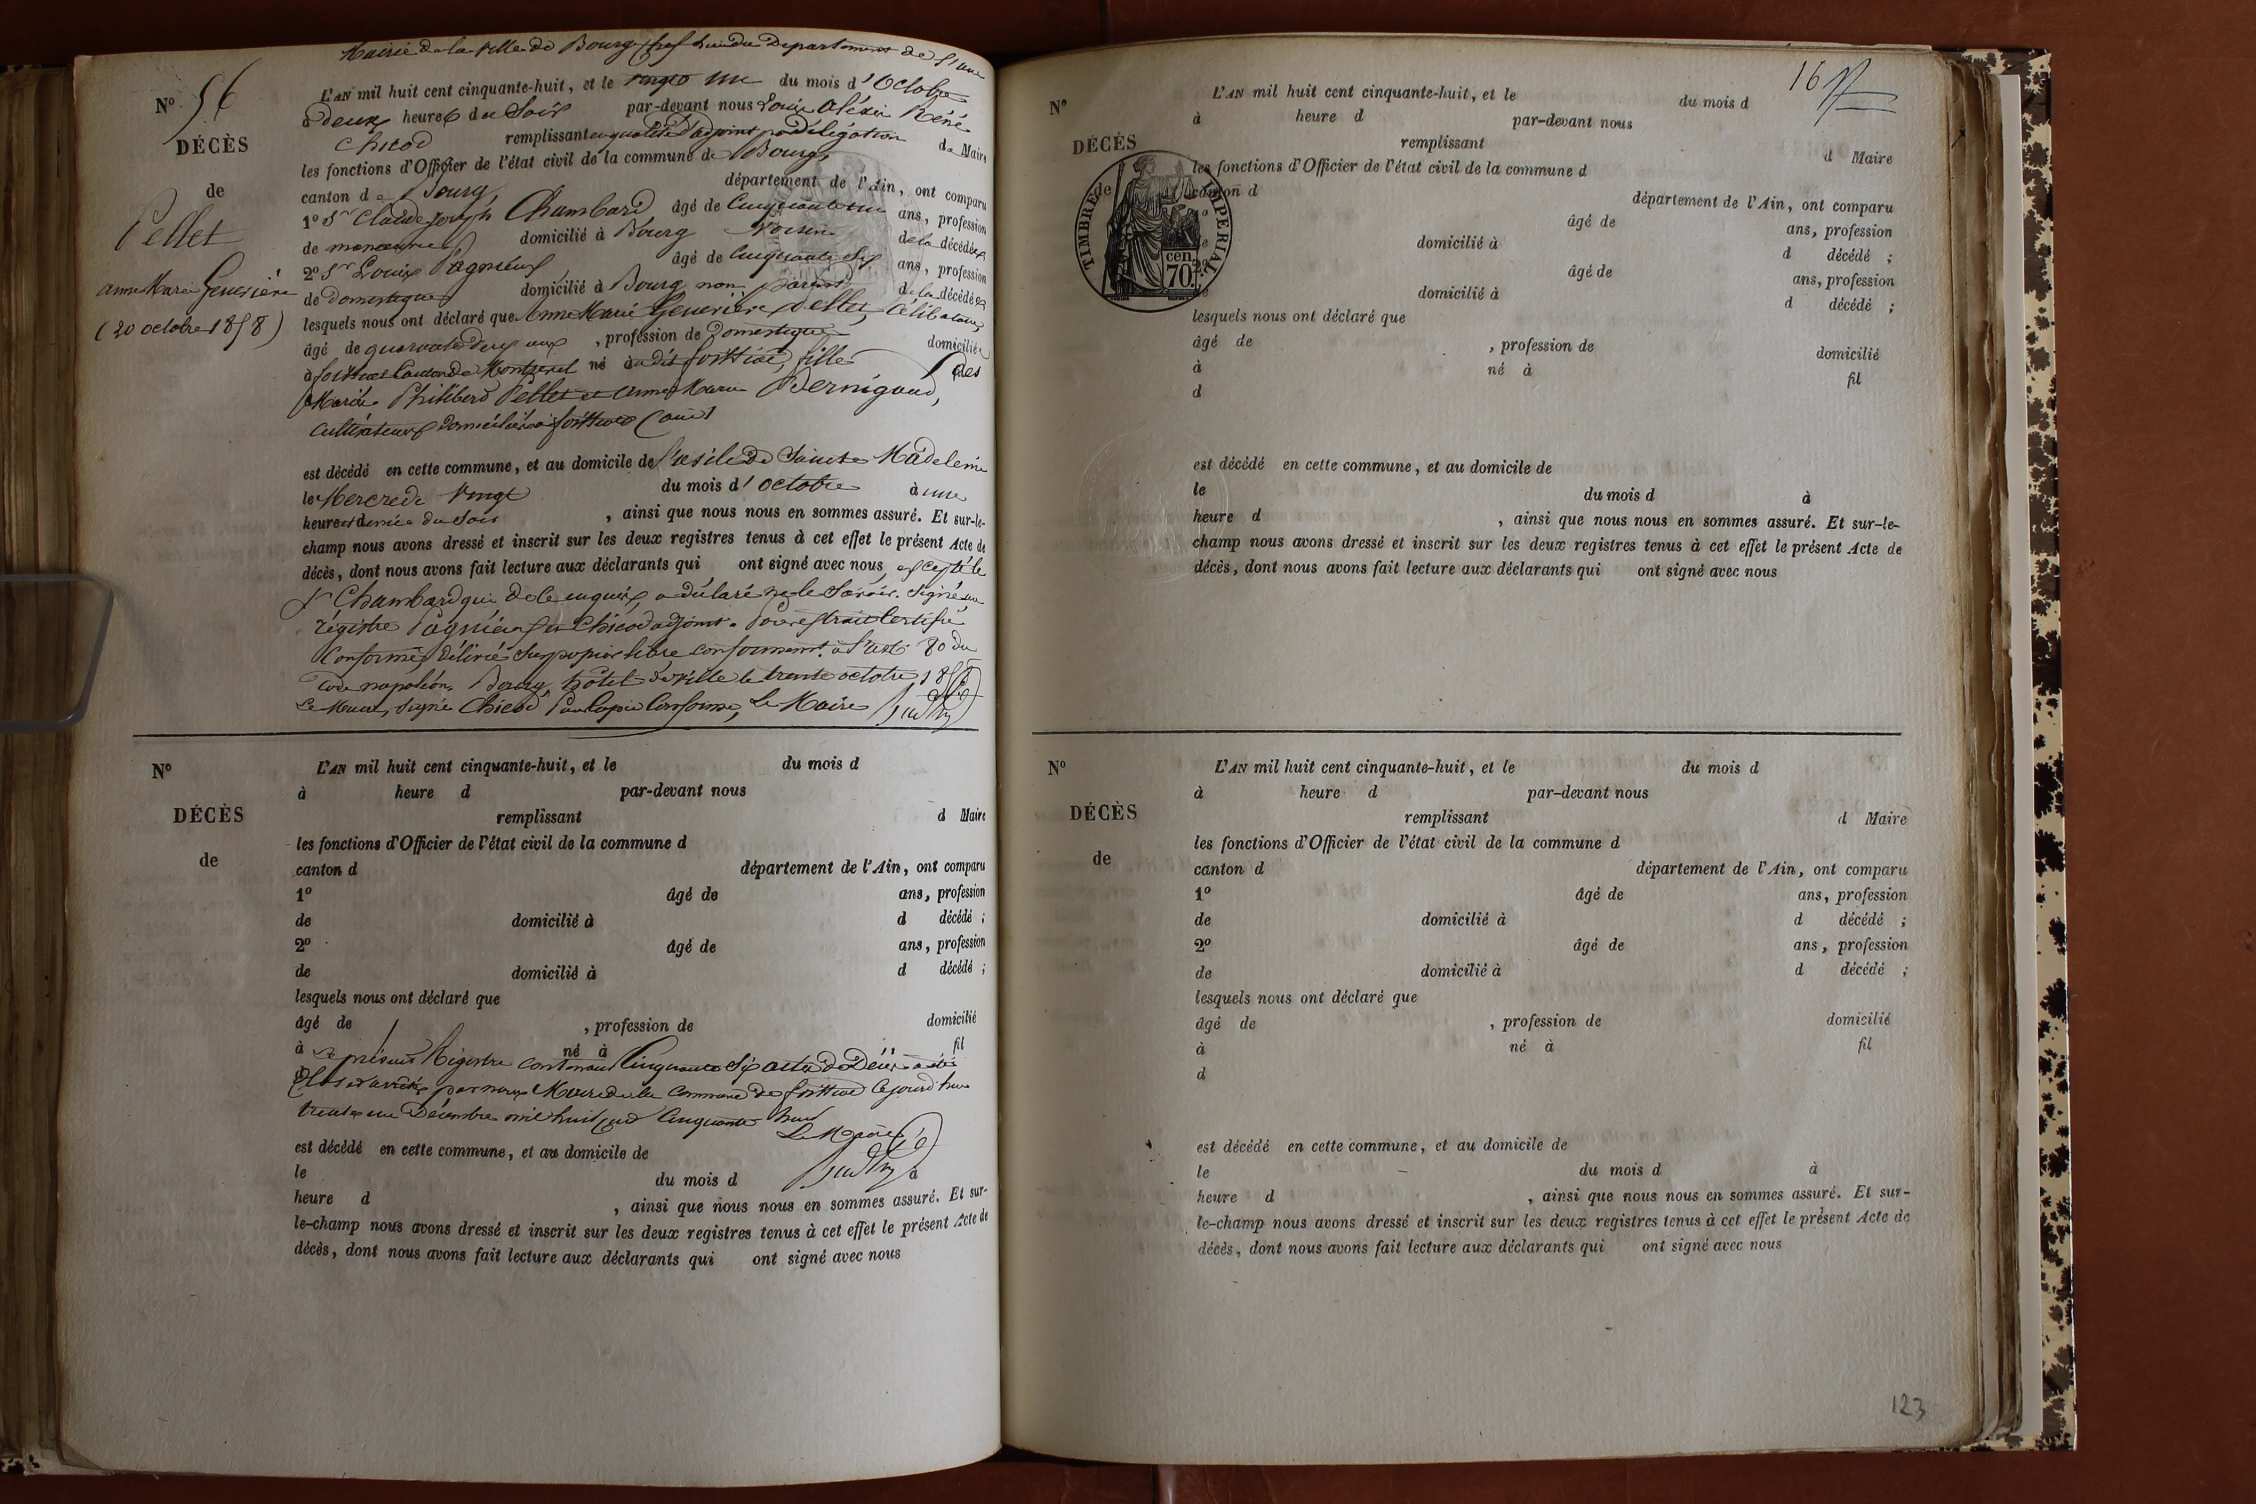 Mairie de la Ville de Bourg chef lieu du Departement de l'ain
N° 56
L'AN mil huit cent cinquante-huit, et le vingt un du mois d'Octobre
à deux heures du Soir par-devant nous Louis Aléxis Réné
DÉCÈS
Chicod remplissant en qualité d'adjoint par délégation du Maire
les fonctions d'Officier de l'état civil de la commune de Bourg
de
canton de Bourg, département de l'Ain, ont comparu
Pellet
1° Sr Claude Joseph Chambard âgé de Cinquante un ans, profession
de manœuvre domicilié à Bourg voisin de la décédée
2° Sr Louis Pagneux âgé de Cinquante six ans, profession
anne Marie Geneviève
de domestique domicilié à Bourg non parent de la décédée
(20 octobre 1858)
lesquels nous ont déclaré que Anne Marie Geneviève Pellet, Célibataire,
âgé de quarante deux ans, profession de Domestique domiciliée
à canton de Montrevel né au dit fille des
Mariés Philibert Pellet et Anne Marie Bernigaud,
Cultivateurs domiciliés à (ain)
est décédé en cette commune, et au domicile de l'asile de Sainte Madeleine
le Mercredi vingt du mois d'octobre à une
heure et demie du Soir, ainsi que nous nous en sommes assuré. Et sur-le-
champ nous avons dressé et inscrit sur les deux registres tenus à cet effet le présent Acte de
décès, dont nous avons fait lecture aux déclarants qui ont signé avec nous excepté le
Sr Chambard qui de ce enquis, a déclaré ne le Savoir. Signé au
régistre Pagneux et Chicod adjoint. Pour extrait Certifié
Conforme, délivré sur papier libre conformemt. à l'art. 80 du
Code napoléon, Bourg, hôtel de ville le trente octobre 1858
Le Maire, Signé Chicod Pour Copie Conforme, Le Maire
N°
L'AN mil huit cent cinquante-huit, et le du mois d
à heure d par-devant nous
DÉCÈS
remplissant d Maire
les fonctions d'Officier de l'état civil de la commune d
de
canton d département de l'Ain, ont comparu
1° âgé de ans, profession
de domicilié à d décédé ;
2° âgé de ans, profession
de domicilié à d décédé ;
lesquels nous ont déclaré que
âgé de , profession de domicilié
à né à fil
Le présent Régistre contenant Cinquante Six actes de Décès a été
d
Clos et arrêté par nous Maire de la Commune de ce jourd'hui
trente un Décembre mil huit cent Cinquante huit
Le Maire
est décédé en cette commune, et au domicile de
le du mois d à
heure d , ainsi que nous nous en sommes assuré. Et sur-
le-champ nous avons dressé et inscrit sur les deux registres tenus à cet effet le présent Acte de
décès, dont nous avons fait lecture aux déclarants qui ont signé avec nous
16
N°
L'AN mil huit cent cinquante-huit, et le du mois d
à heure d par-devant nous
DÉCÈS
remplissant d Maire
les fonctions d'Officier de l'état civil de la commune d
de
canton d département de l'Ain, ont comparu
TIMBRE IMPERIAL
cen.
70.
âgé de ans, profession
domicilié à d décédé ;
2° âgé de ans, profession
de domicilié à d décédé ;
lesquels nous ont déclaré que
âgé de , profession de domicilié
à né à fil
d
est décédé en cette commune, et au domicile de
le du mois d à
heure d , ainsi que nous nous en sommes assuré. Et sur-le-
champ nous avons dressé et inscrit sur les deux registres tenus à cet effet le présent Acte de
décès, dont nous avons fait lecture aux déclarants qui ont signé avec nous
N°
L'AN mil huit cent cinquante-huit, et le du mois d
à heure d par-devant nous
DÉCÈS
remplissant d Maire
les fonctions d'Officier de l'état civil de la commune d
de
canton d département de l'Ain, ont comparu
1° âgé de ans, profession
de domicilié à d décédé ;
2° âgé de ans, profession
de domicilié à d décédé ;
lesquels nous ont déclaré que
âgé de , profession de domicilié
à né à fil
d
est décédé en cette commune, et au domicile de
le du mois d à
heure d , ainsi que nous nous en sommes assuré. Et sur-
le-champ nous avons dressé et inscrit sur les deux registres tenus à cet effet le présent Acte de
décès, dont nous avons fait lecture aux déclarants qui ont signé avec nous
123